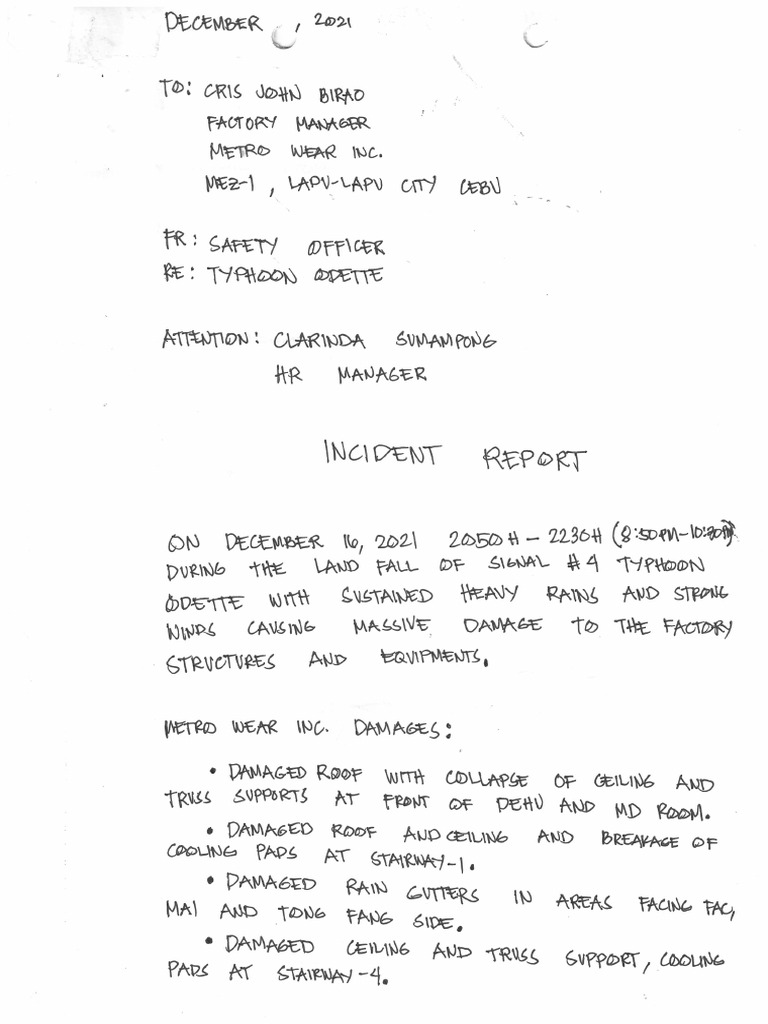 DECEMBER , 2021
TO: CRIS JOHN BIRAO
FACTORY MANAGER
METRO WEAR INC.
MEZ-1, LAPU-LAPU CITY CEBU
FR: SAFETY OFFICER
RE: TYPHOON ODETTE
ATTENTION: CLARINDA SUMAMPONG
HR MANAGER
INCIDENT REPORT
ON DECEMBER 16, 2021 2050H - 2230H (8:50PM-10:30PM)
DURING THE LAND FALL OF SIGNAL #4 TYPHOON
ODETTE WITH SUSTAINED HEAVY RAINS AND STRONG
WINDS CAUSING MASSIVE DAMAGE TO THE FACTORY
STRUCTURES AND EQUIPMENTS.
METRO WEAR INC. DAMAGES:
• DAMAGED ROOF WITH COLLAPSE OF CEILING AND
TRUSS SUPPORTS AT FRONT OF DEHU AND MD ROOM.
• DAMAGED ROOF AND CEILING AND BREAKAGE OF
COOLING PADS AT STAIRWAY-1.
• DAMAGED RAIN GUTTERS IN AREAS FACING FAC,
MAI AND TONG FANG SIDE.
• DAMAGED CEILING AND TRUSS SUPPORT, COOLING
PADS AT STAIRWAY-4.